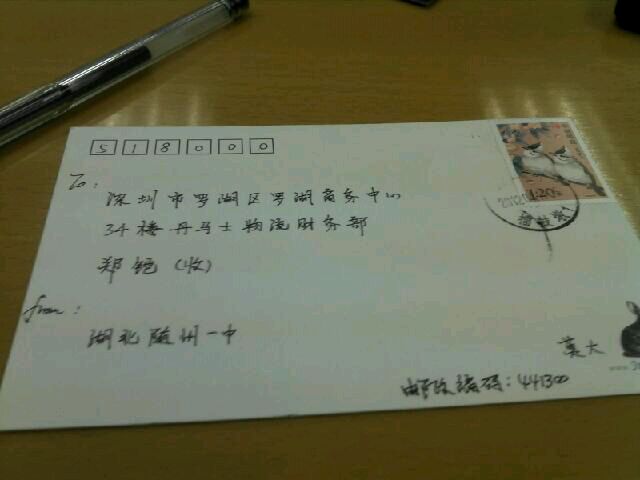 518000
To:
深圳市罗湖区罗湖商务中心
34楼丹马士物流财务部
郑艳(收)
from:
湖北随州一中
莫大
邮政编码:441300